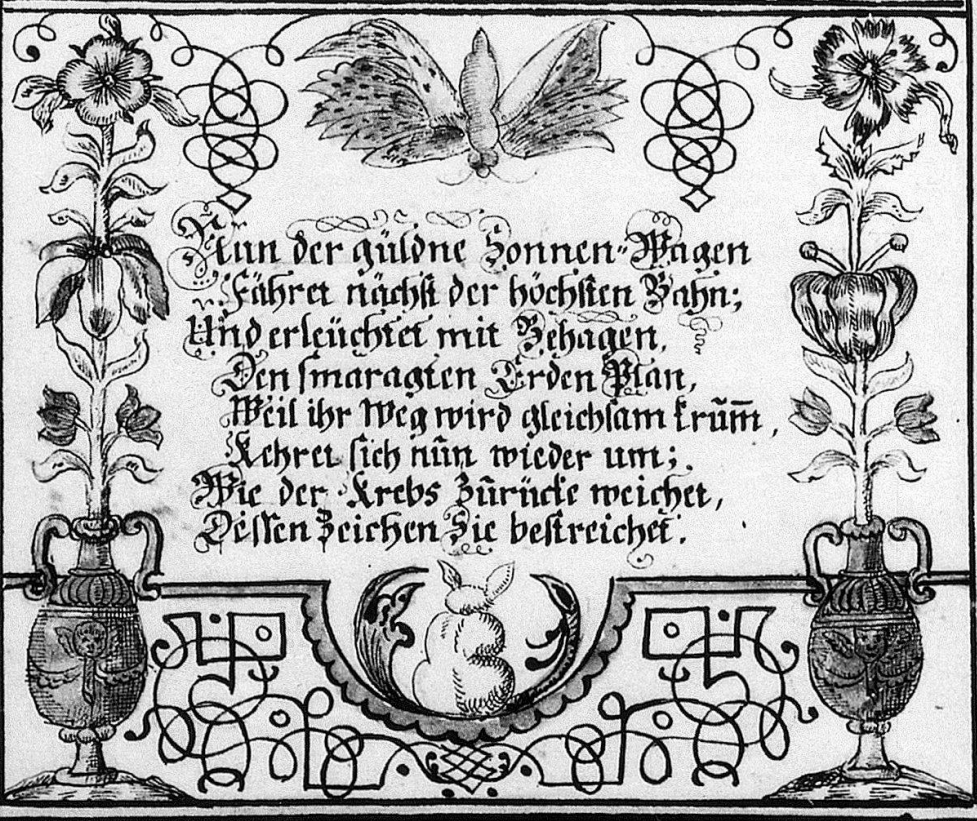 Nun der güldne Sonnen-Wagen
Fähret nächst der höchsten Bahn;
Und erleüchtet mit Behagen,
Den smaragten Erden Plan,
Weil ihr Weg wird gleichsam krum̅,
Kehret sich nŭn wieder um;
Wie der Krebs Zŭrücke weichet,
Dessen Zeichen Sie bestreichet.